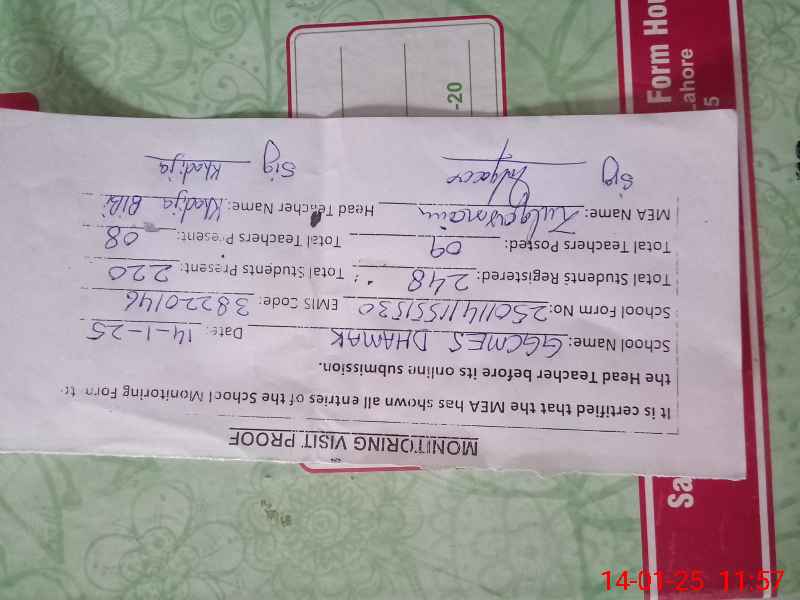 MONITORING VISIT PROOF
It is certified that the MEA has shown all entries of the School Monitoring Form to
the Head Teacher before its online submission.
School Name: GGCMES DHAMAK Date: 14-1-25
School Form No: 250114115551530 EMIS Code: 38220146
Total Students Registered: 248 Total Students Present: 220
Total Teachers Posted: 09 Total Teachers Present: 08
MEA Name: Head Teacher Name: Khadija BiBi
Sig Sig Khadija
Form Hou
Lahore
5
-20
Sa
14-01-25 11:57